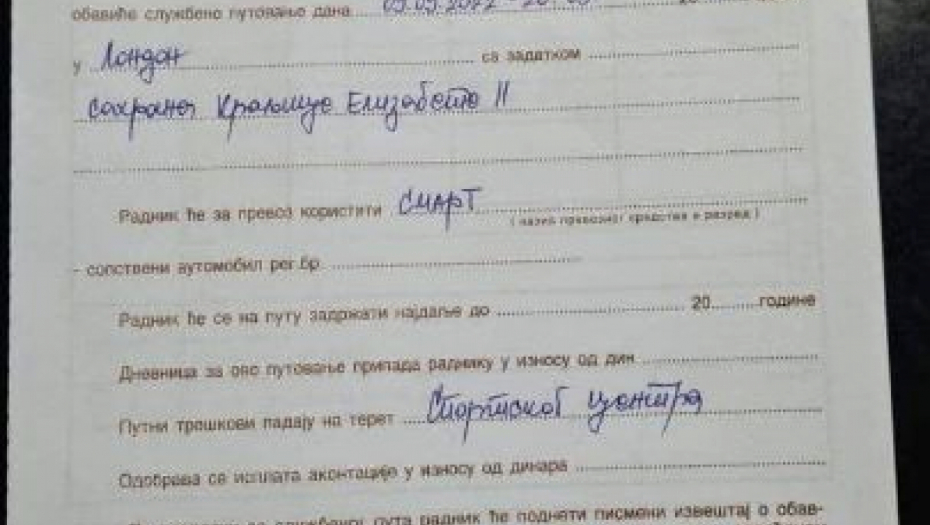 обавиће службено путовање дана
у Лондон са задатком
сахране Краљице Елизабете II
Радник ће за превоз користити СМАРТ
( назив превозног средства и разред )
- сопствени аутомобил рег.бр.
Радник ће се на путу задржати најдаље до 20 године
Дневница за ово путовање припада раднику у износу од дин.
Путни трошкови падају на терет Спортског центра
Одобрава се исплата аконтације у износу од динара
службеног пута радник ће поднети писмени извештај о обав-